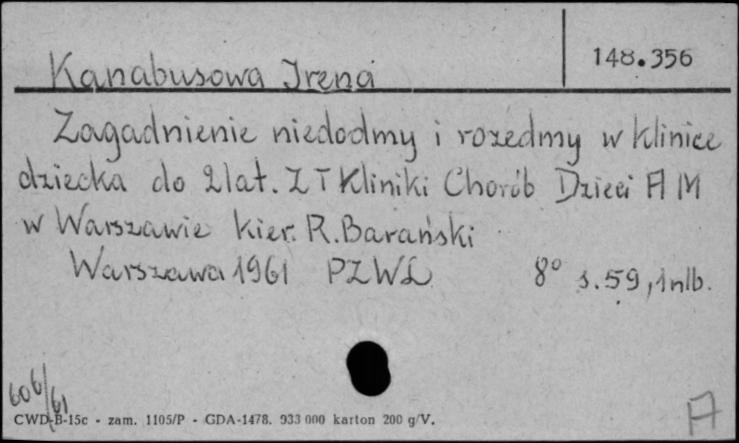 148.356
Kanabusowa Irena
Zagadnienie niedodmy i rozedmy w klinice
dziecka do 2 lat. Z I Kliniki Chorób Dzieci A M
w Warszawie kier. R. Barański
Warszawa 1961 PZWL 8° s. 59, 1 nlb.
606/61
CWD-B-15c - zam. 1105/P - GDA-1478. 933 000 karton 200 g/V.
A